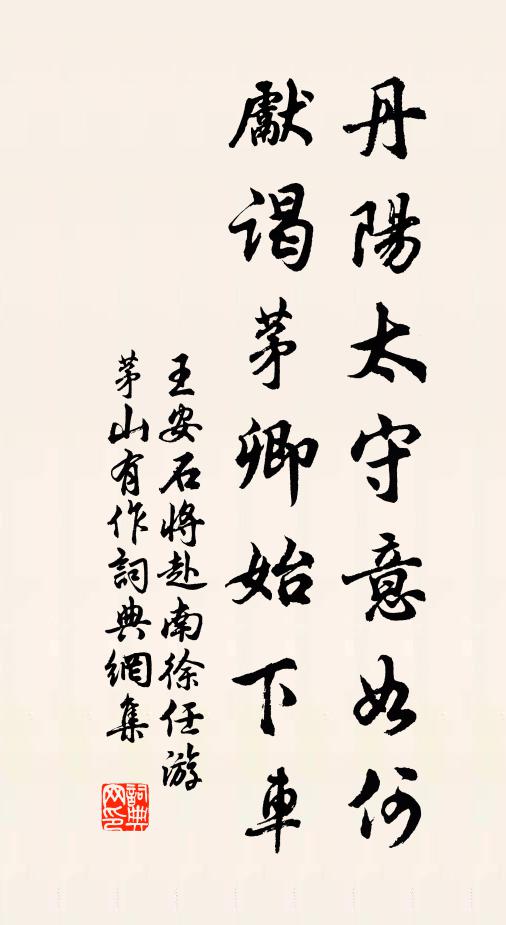 丹陽太守意如何
獻謁茅卿始下車
王安石將赴南徐任游
茅山有作詞典網集
詞典
网印